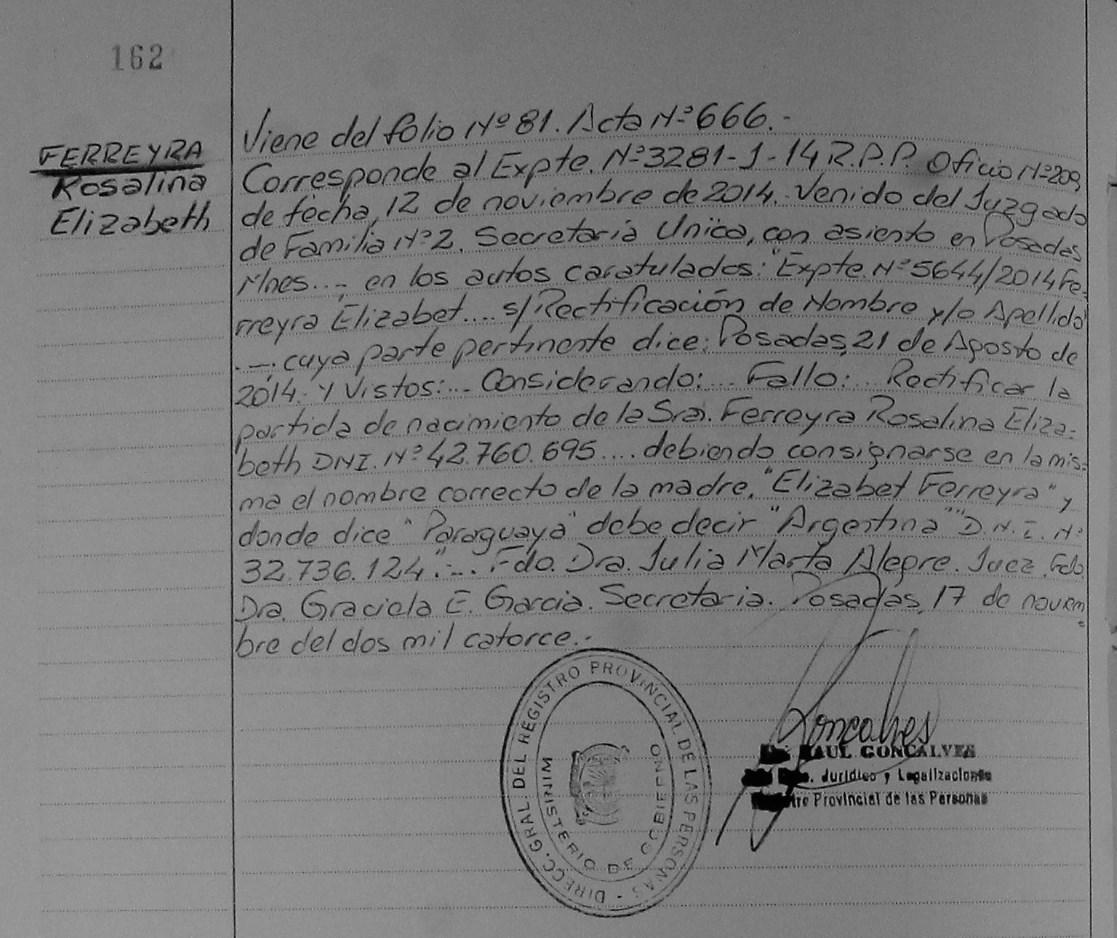 162
FERREYRA
Rosalina
Elizabeth
Viene del folio Nº 81. Acta Nº 666.-
Corresponde al Expte. Nº 3281-J-14 R.P.P. Oficio Nº 209,
de fecha, 12 de noviembre de 2014. Venido del Juzgado
de Familia Nº 2. Secretaría Unica, con asiento en Posadas
Mnes...- en los autos caratulados: "Expte. Nº 5644/2014 Fe-
rreyra Elizabet.... s/Rectificación de Nombre y/o Apellido"
.-. cuya parte pertinente dice: Posadas, 21 de Agosto de
2014. Y Vistos:... Considerando:... Fallo:... Rectificar la
partida de nacimiento de la Sra. Ferreyra Rosalina Eliza-
beth DNI. Nº 42.760.695.... debiendo consignarse en la mis-
ma el nombre correcto de la madre, "Elizabet Ferreyra" y
donde dice "Paraguaya" debe decir "Argentina" D.N.I. Nº
32.736.124."... Fdo. Dra. Julia Marta Alegre. Juez. Fdo.
Dra. Graciela E. Garcia. Secretaria. Posadas, 17 de noviem
bre del dos mil catorce.-
DIRECC. GRAL. DEL REGISTRO PROVINCIAL DE LAS PERSONAS -
MINISTERIO DE GOBIERNO
Goncalves
RAUL GONCALVES
Jurídico y Legalizaciones
Provincial de las Personas